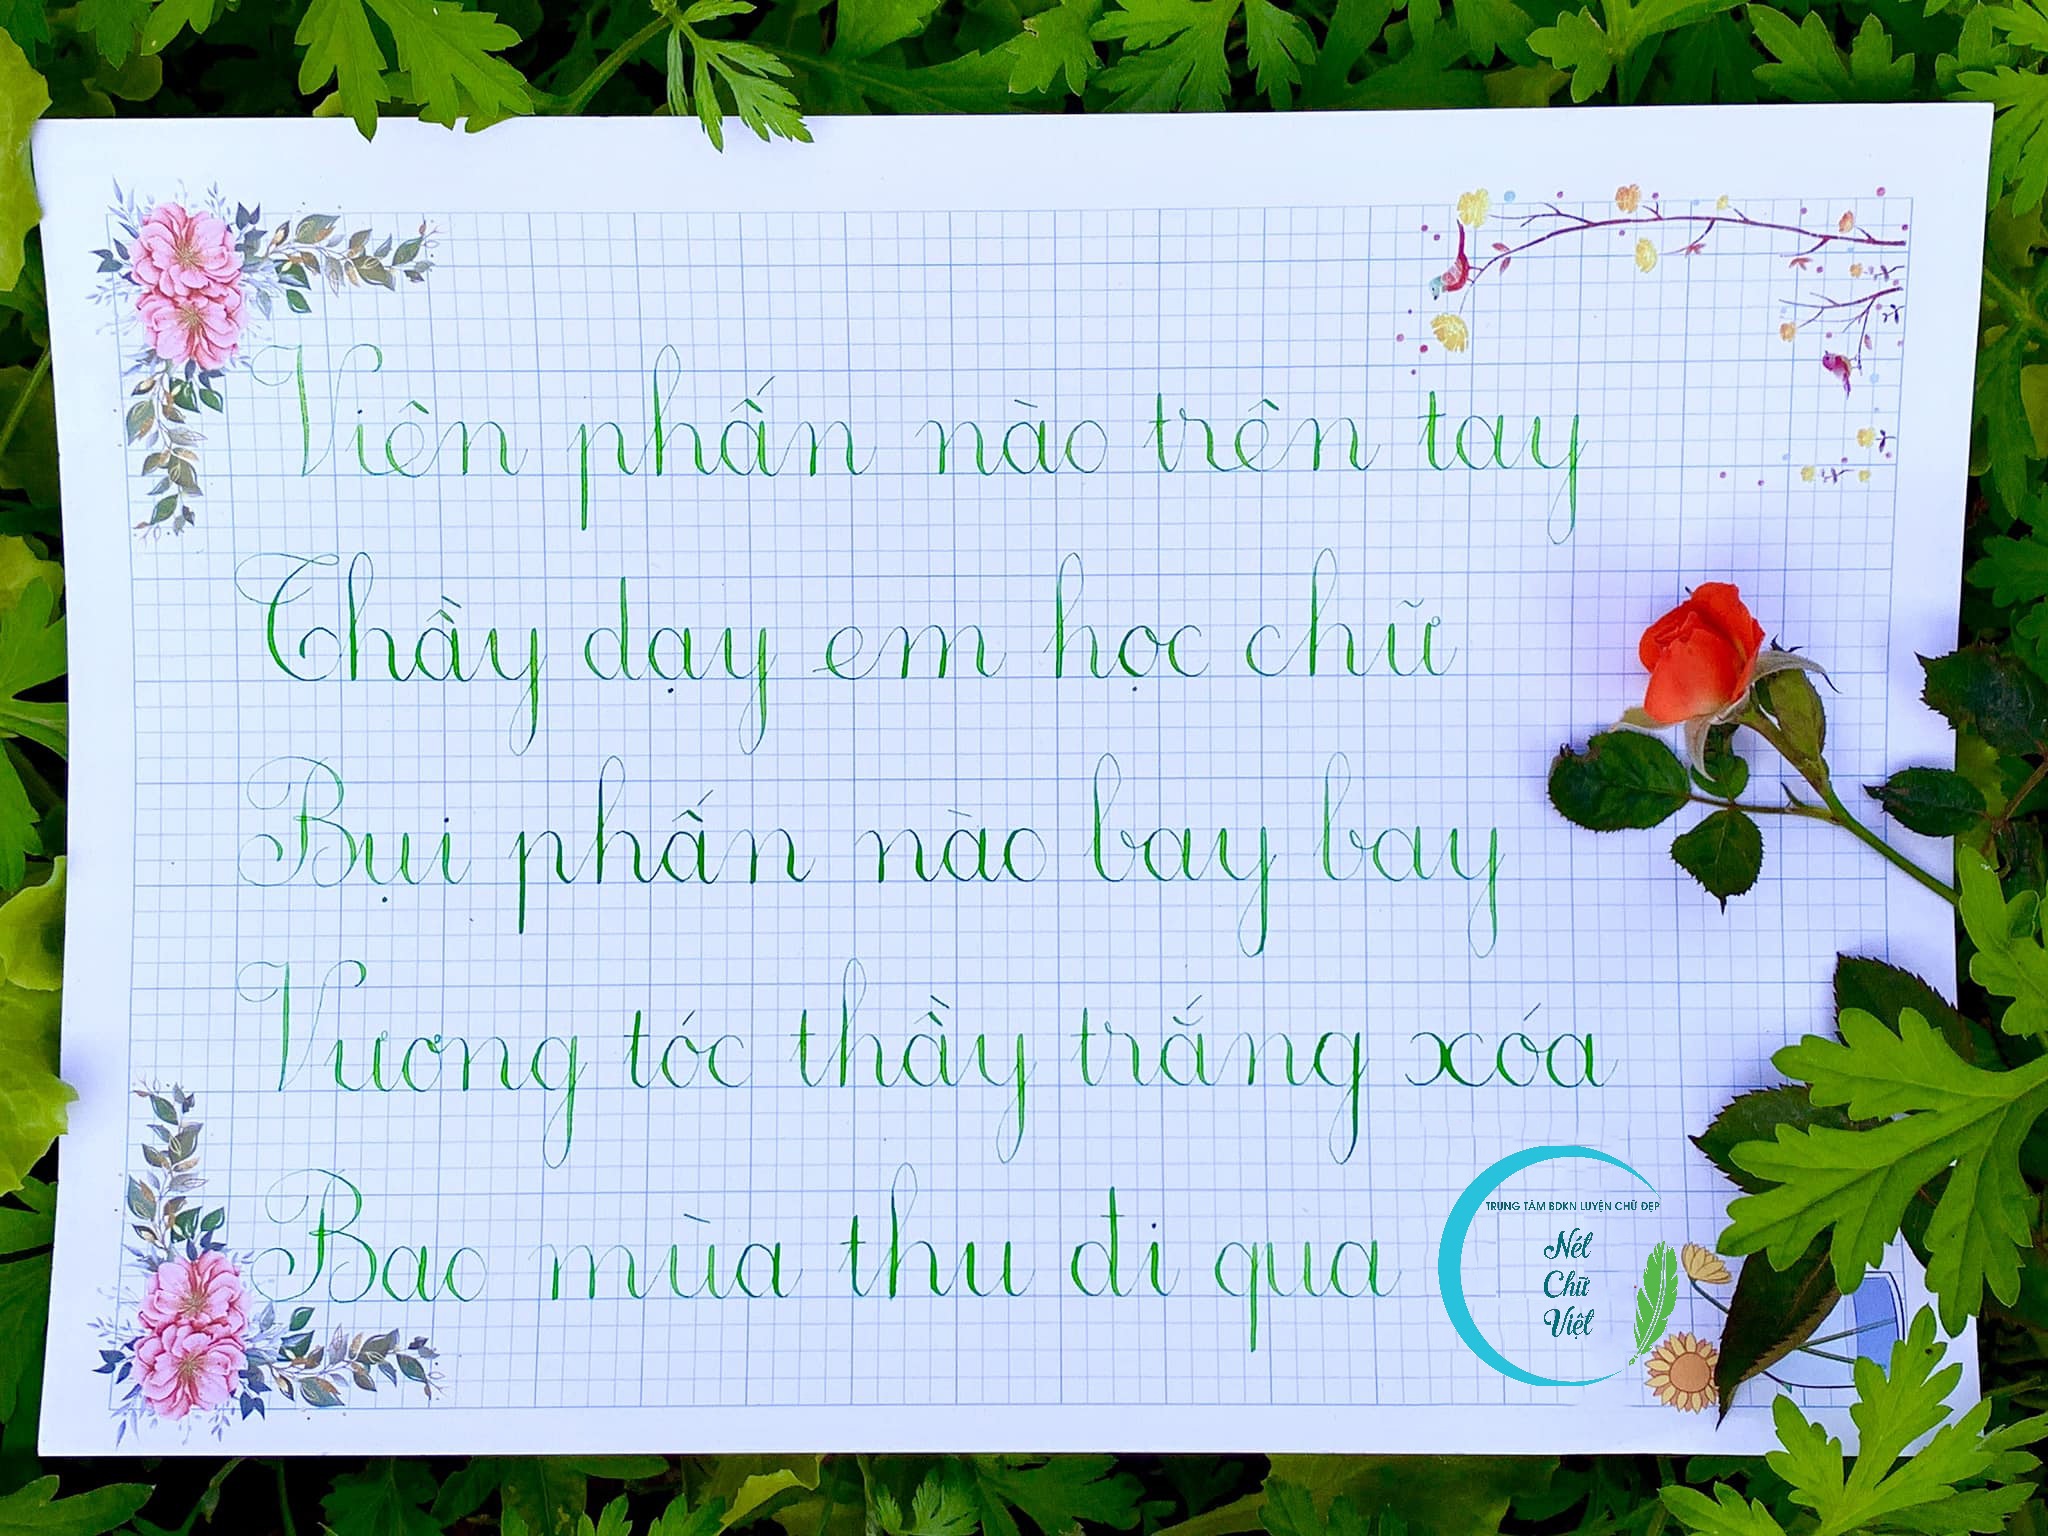 Viên phấn nào trên tay
Thầy dạy em học chữ
Bụi phấn nào bay bay
Vương tóc thầy trắng xóa
Bao mùa thu đi qua
TRUNG TÂM BDKN LUYỆN CHỮ ĐẸP
Nét
Chữ
Việt